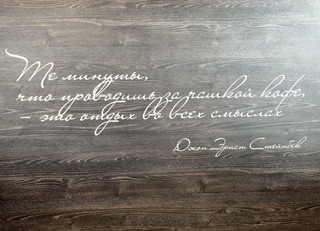 Те минуты,
что проводишь за чашкой кофе,
– это отдых во всех смыслах
Джон Эрнст Стейнбек